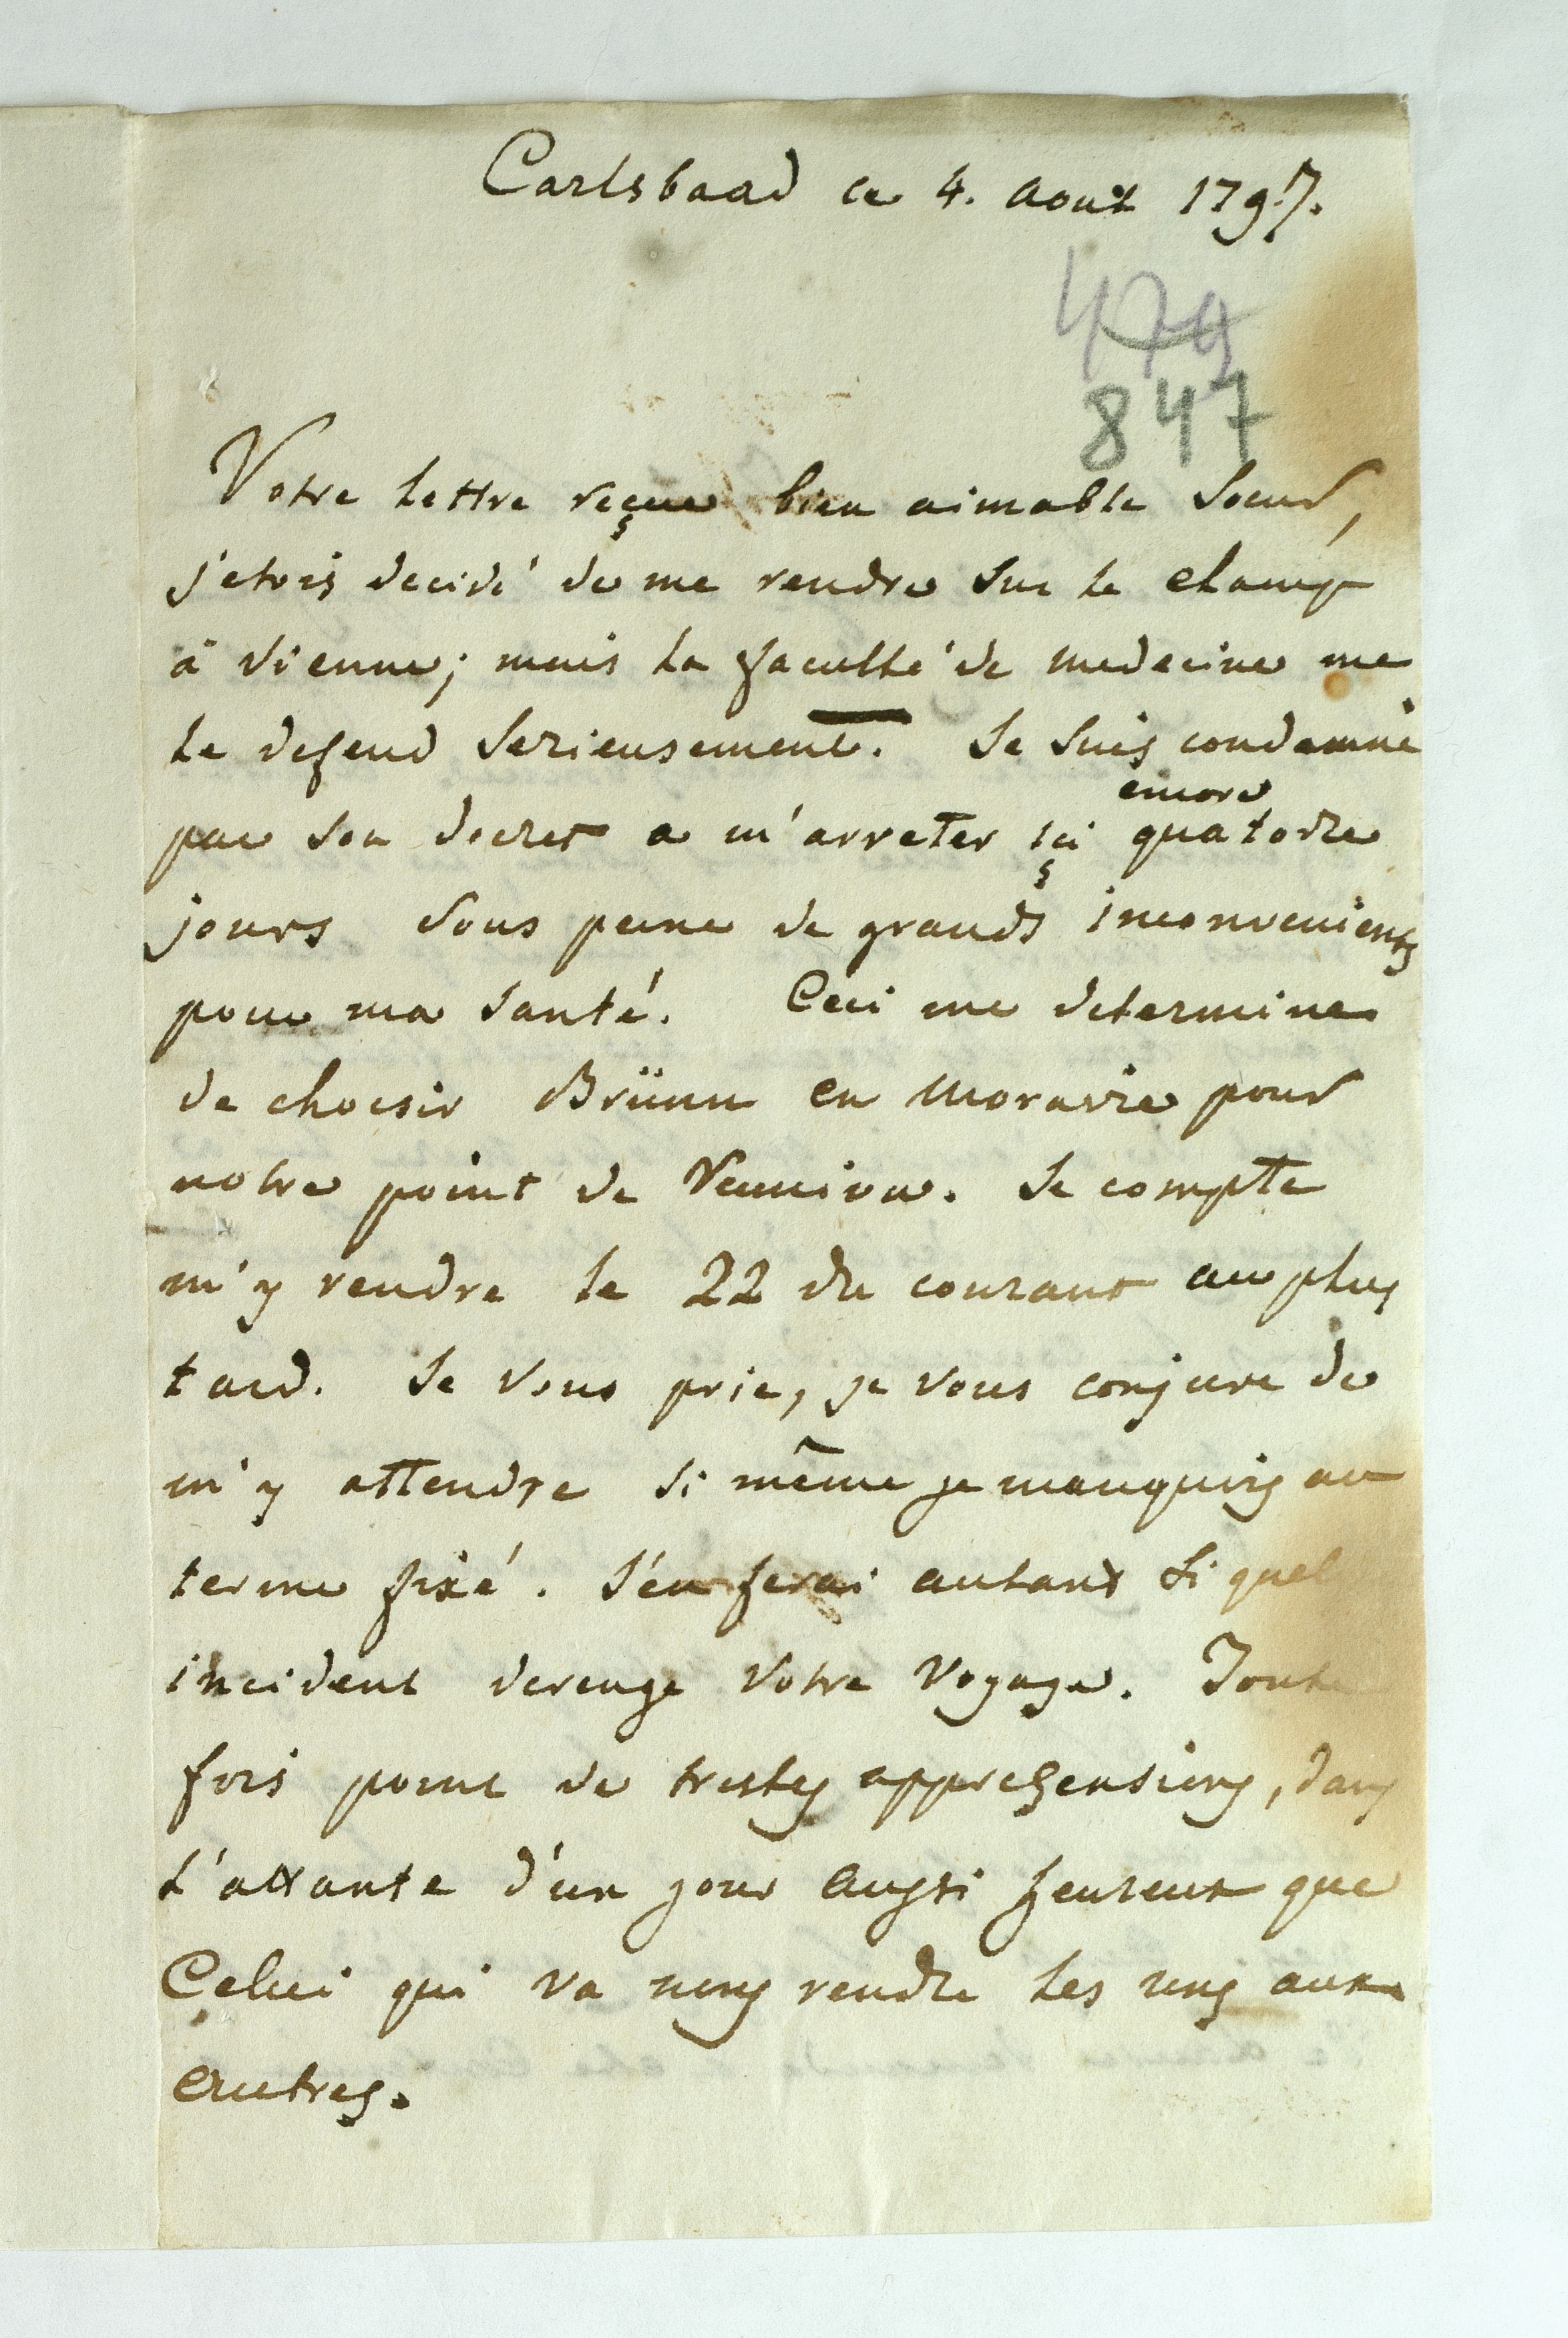 Carlsbaad ce 4. Aout 1797.
479
847
Votre lettre reçue bien aimable Soeur,
j'etois decidé de me rendre sur le champ
à Vienne; mais la faculté de Medecine me
le defend serieusement. Je suis condamné
encore
par son decret a m'arreter içi quatorze
jours sous peine de grands inconvenients
pour ma santé. Ceci me determine
de choisir Brünn en Moravie pour
notre point de reunion. Je compte
m'y rendre le 22 du courant au plus
tard. Je vous prie, je vous conjure de
m'y attendre si même je manquois au
terme fixé. J'en ferai autant si quel
incident derenge votre voyage. Toute
fois point de tristes apprehensions, dans
l'attante d'un jour aussi heureux que
Celui qui va nous rendre les uns aux
autres.